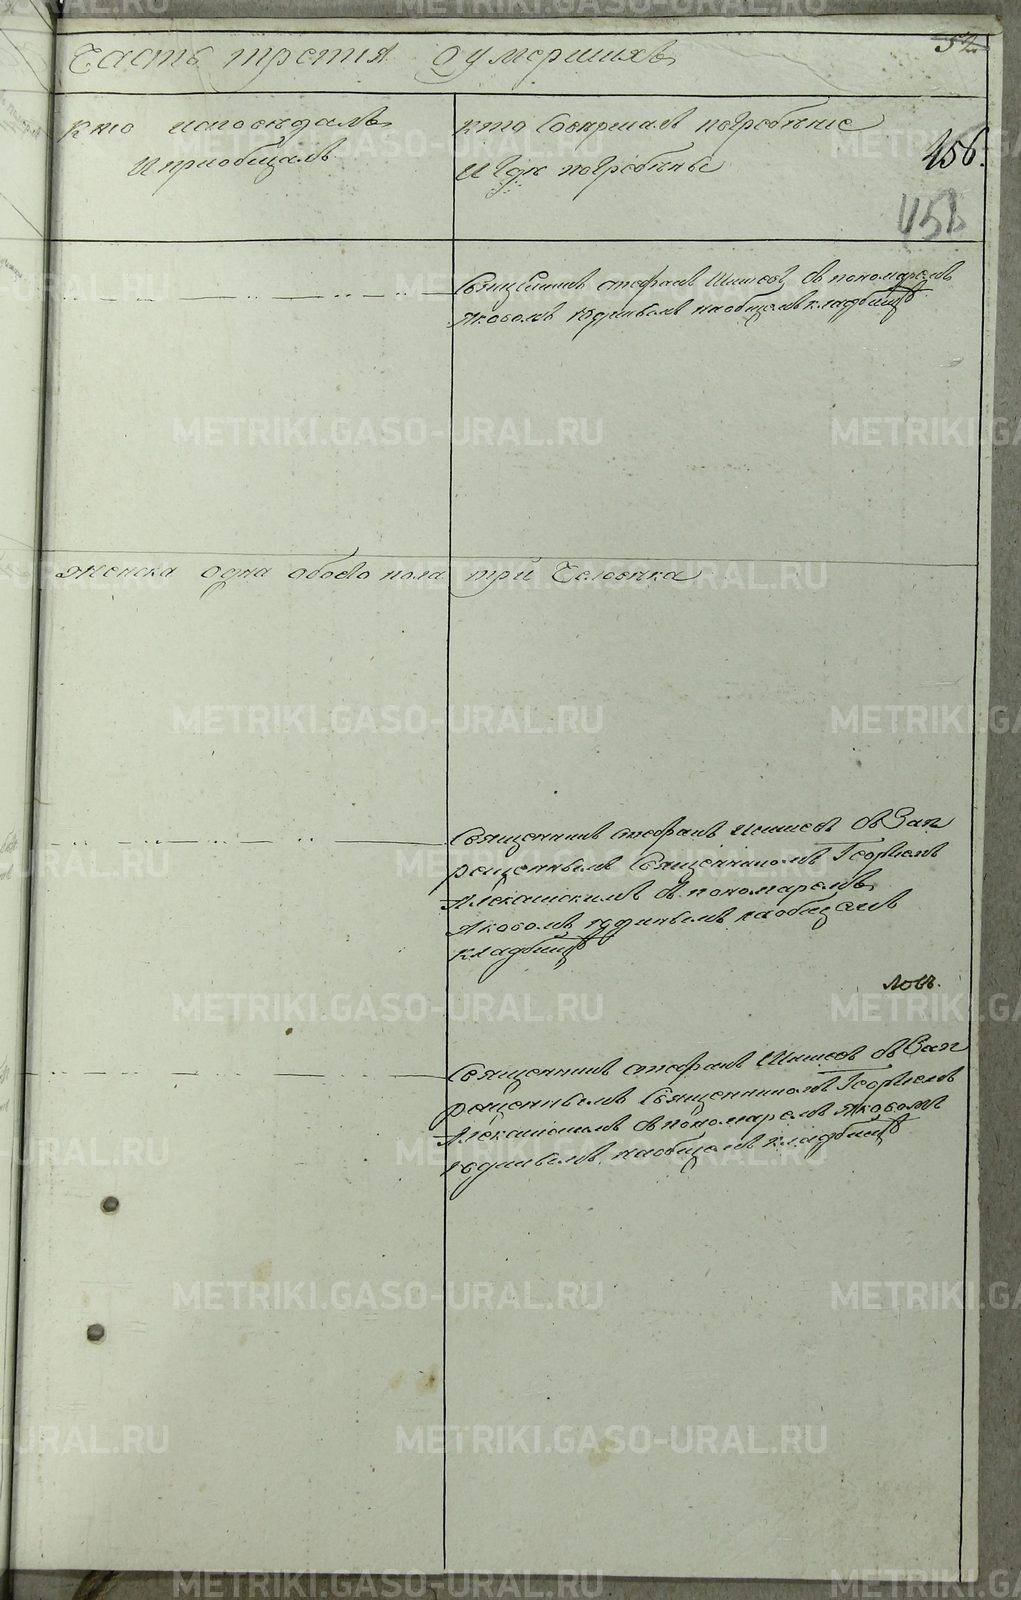 Часть третія о умершихъ
52
кто исповедалъ
и приобщалъ
кто Совершалъ погребѣніе
и гдѣ погребены
456.
456
Священникъ Стефанъ съ пономаремъ
Яковомъ Юдинымъ на общемъ кладбищѣ
женска одна обоего пола три Человѣка
Священникъ Стефанъ съ Зап
рещеннымъ Священникомъ Георгіемъ
съ пономаремъ
Яковомъ Юдинымъ на общемъ
кладбищѣ
ловъ.
Священникъ Стефанъ съ Зап
рещеннымъ Священникомъ Георгіемъ
съ пономаремъ Яковомъ
Юдинымъ на общемъ кладбищѣ
METRIKI.GASO-URAL.RU